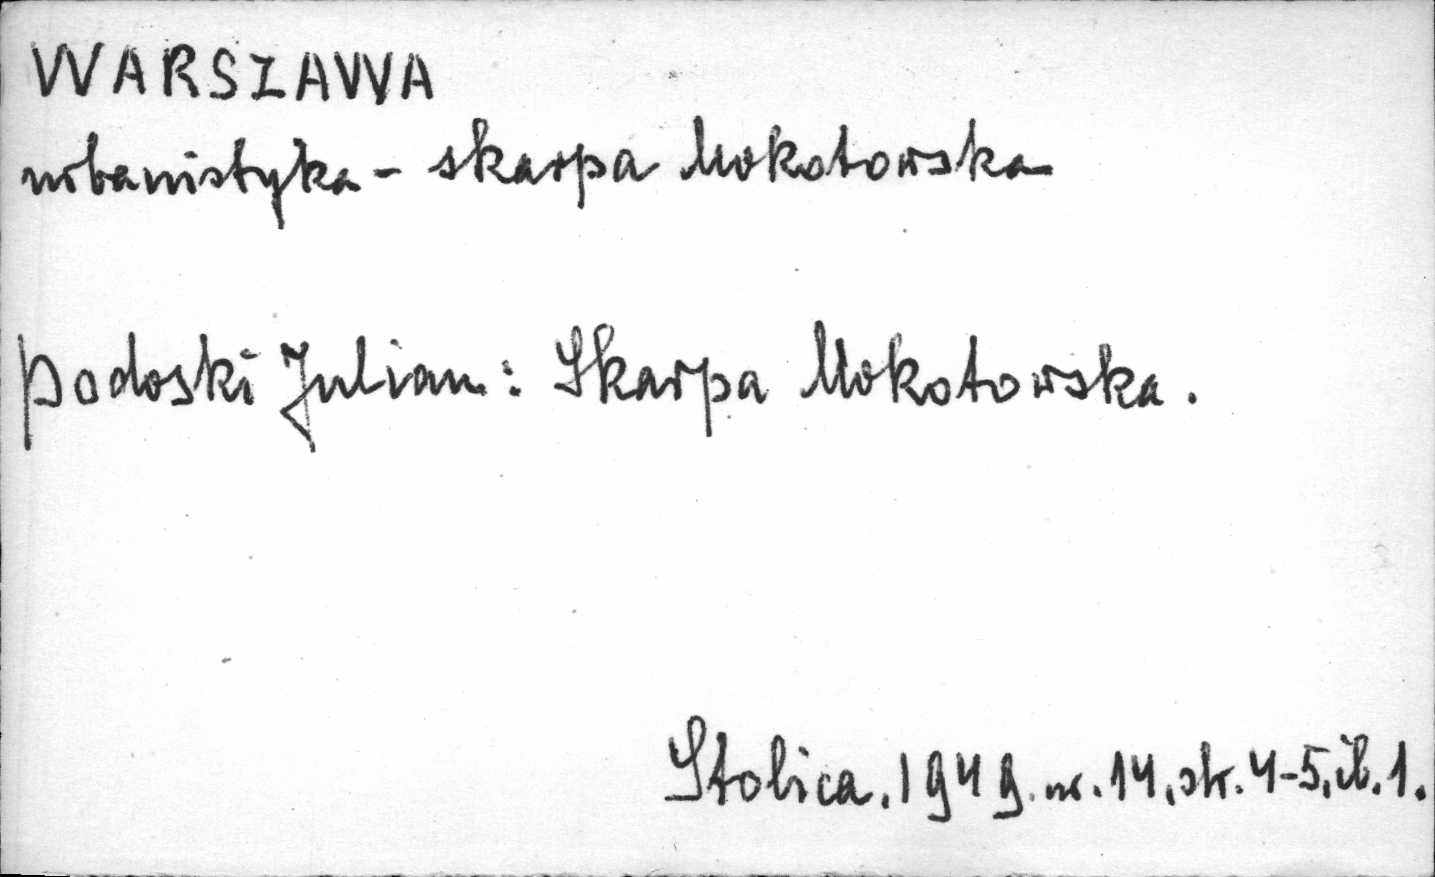 WARSZAWA
urbanistyka - skarpa Mokotowska
Podoski Julian: Skarpa Mokotowska.
Stolica. 1949. nr. 14, str. 4-5, il. 1.